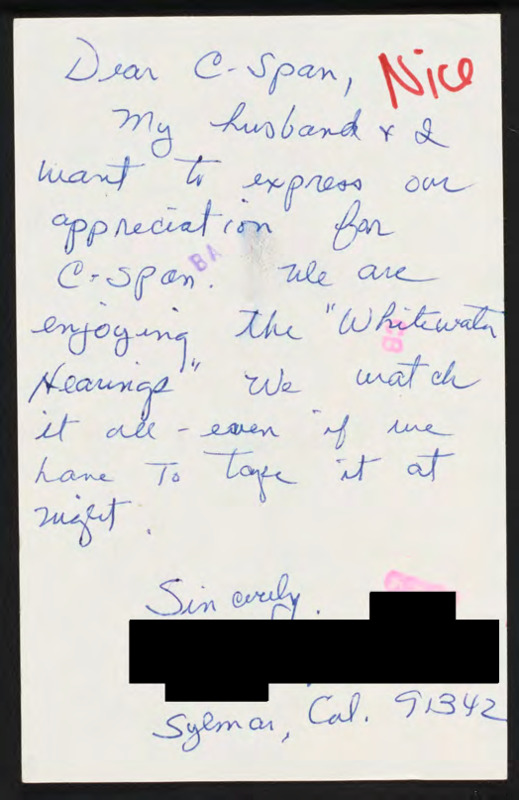 Dear C-Span,
Nice
My husband & I
want to express our
appreciation for
C-Span. We are
BA
enjoying the "Whitewater
Hearings" We watch
it all - even if we
have To tape it at
night.
Sincerely.
Sylmar, Cal. 91342